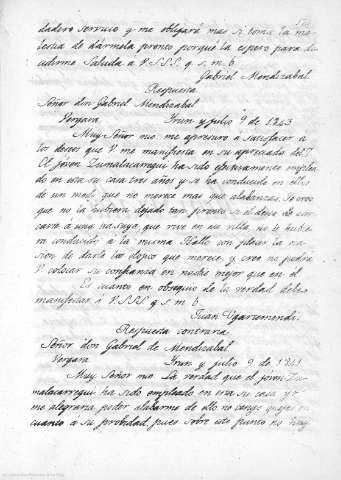 dadero servicio y me obligará mas si toma la mo-
lestia de dármela pronto porque la espero para de-
cidirme Saluda á V.S.S.S. q. s. m. b.
Gabriel Mendizabal
Respuesta
Señor don Gabriel Mendizabal
Vergara Irun y julio 9 de 1243
Muy Señor mio me apresuro á satisfacer á
los deseos que V me manifiesta en su apreciada del 7
El joven Zumalacarregui ha sido efectivamente emplea-
do en esta su casa tres años y se ha conducido en ellos
de un modo que no merece mas que alabanzas. Yo creo
que no la hubiera dejado tan pronto si el deseo de acer-
carse a una tia suya que vive en esa villa no le hubie-
ra conducido á la misma Hallo con placer la oca-
sion de darle los elogios que merece y creo no podra
V colocar su confianza en nadie mejor que en él
Es cuanto en obsequio de la verdad debe
manifestar á V.S.S.S. q. s. m. b.
Juan Ugartemendi
Respuesta contraria
Señor don Gabriel de Mendizabal
Vergara Irun y julio 9 de 1241
Muy Señor mio La verdad que el jóven Zu-
malacarregui ha sido empleado en esta su casa y
me alegraria poder alabarme de ello no tengo quejas en
cuanto a su probidad, pues sobre este punto no hay